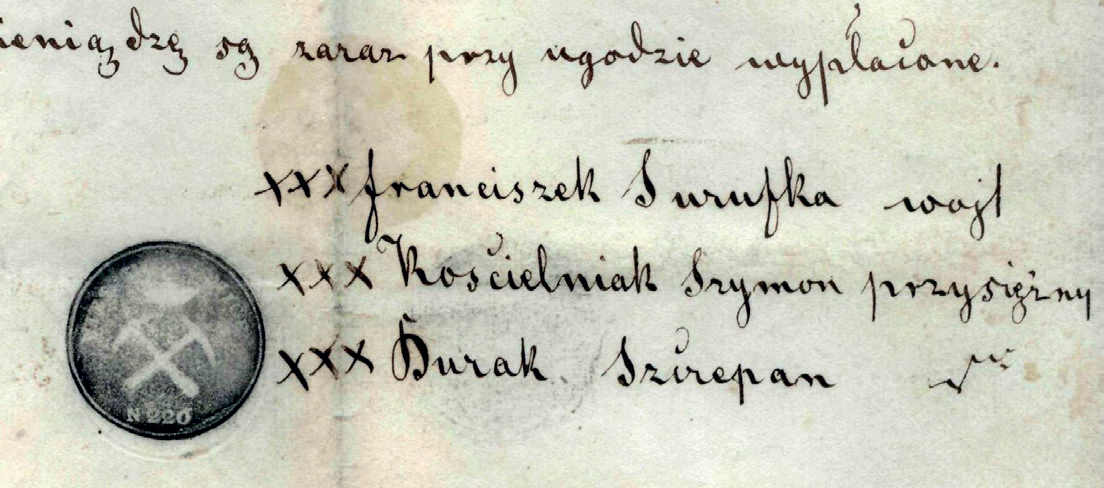 ieniądzę są zaraz przy ugodzie wypłacone.
xxx Franciszek Surufka wojt
xxx Kościelniak Szymon przysiężny
xxx Burak Szczepan
N 220